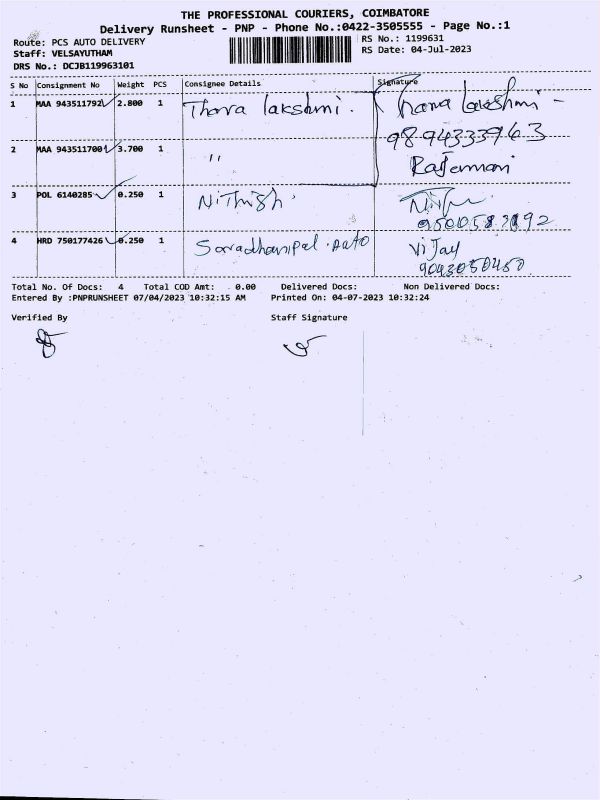 THE PROFESSIONAL COURIERS, COIMBATORE
Delivery Runsheet - PNP - Phone No.:0422-3505555 - Page No.:1
Route: PCS AUTO DELIVERY
RS No.: 1199631
Staff: VELSAYUTHAM
RS Date: 04-Jul-2023
DRS No.: DCJB119963101
S No Consignment No Weight PCS Consignee Details Signature
1 MAA 943511792 2.800 1 Thara lakshmi. Thara lakshmi -
9894333963
2 MAA 943511700 3.700 1 " Rajamani
3 POL 6140285 0.250 1 Nithish.
4 HRD 750177426 0.250 1 Auto Vijay
9043050450
Total No. Of Docs: 4 Total COD Amt: 0.00 Delivered Docs: Non Delivered Docs:
Entered By :PNPRUNSHEET 07/04/2023 10:32:15 AM Printed On: 04-07-2023 10:32:24
Verified By Staff Signature